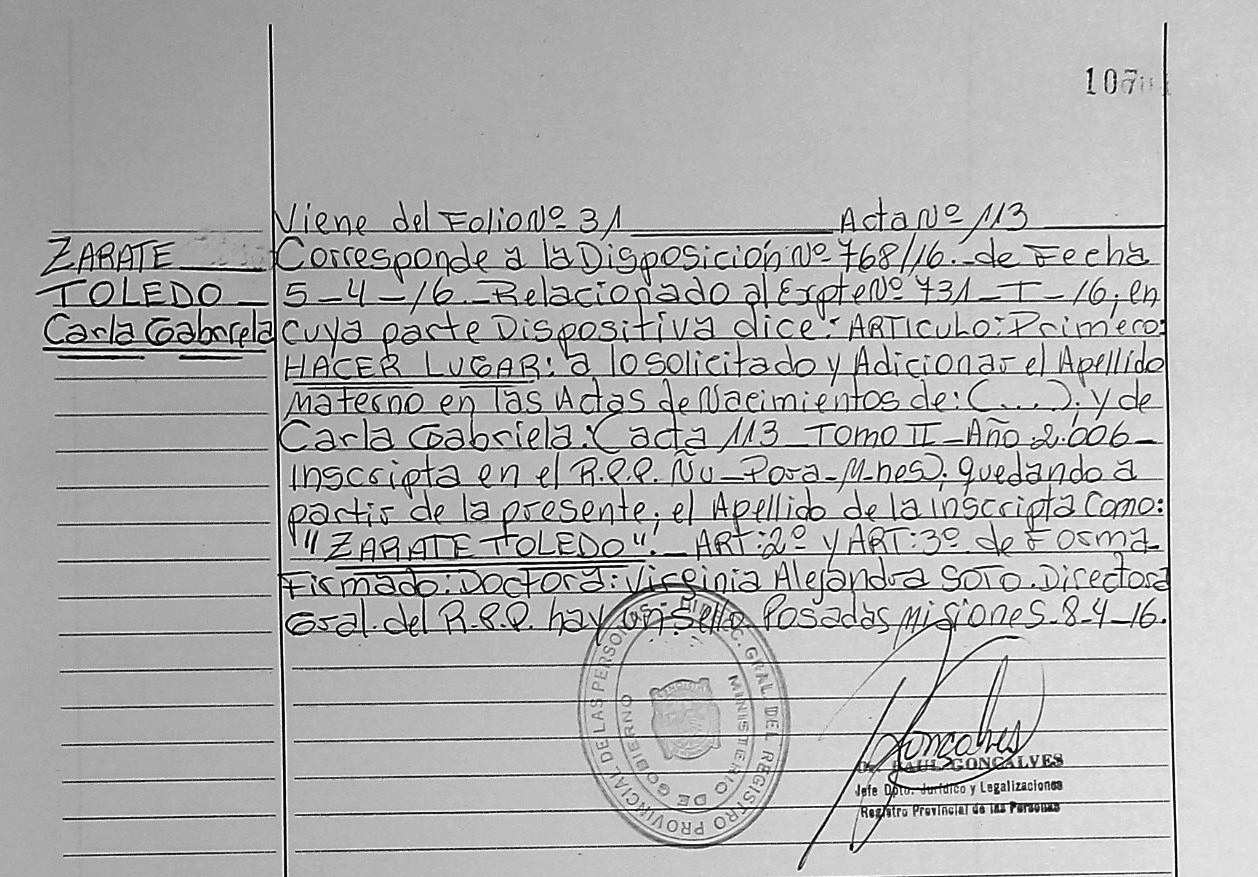 107
Viene del Folio Nº 31 Acta Nº 113
ZARATE
TOLEDO
Carla Gabriela
Corresponde a la Disposición Nº 768/16.-de Fecha
5-4-16.-Relacionado al Expte Nº 731-T-16; en
cuya parte Dispositiva dice: ARTICULO: Primero:
HACER LUGAR: a lo solicitado y Adicionar el Apellido
Materno en las Actas de Nacimientos de: (....); y de
Carla Gabriela: (acta 113 TOMO II-Año 2.006-
inscripta en el R.P.P. Ñu-Pora-M-nes); quedando a
partir de la presente; el Apellido de la inscripta Como:
"ZARATE TOLEDO".- ART:2º y ART:3º de Forma
Firmado: Doctora: Virginia Alejandra SOTO. Directora
Gral. del R.P.P. hay un sello Posadas Misiones-8-4-16.
DIREC. GRAL. DEL REGISTRO PROVINCIAL DE LAS PERSONAS
MINISTERIO DE GOBIERNO
Goncalves
Dr. RAUL GONCALVES
Jefe Dpto. Jurídico y Legalizaciones
Registro Provincial de las Personas